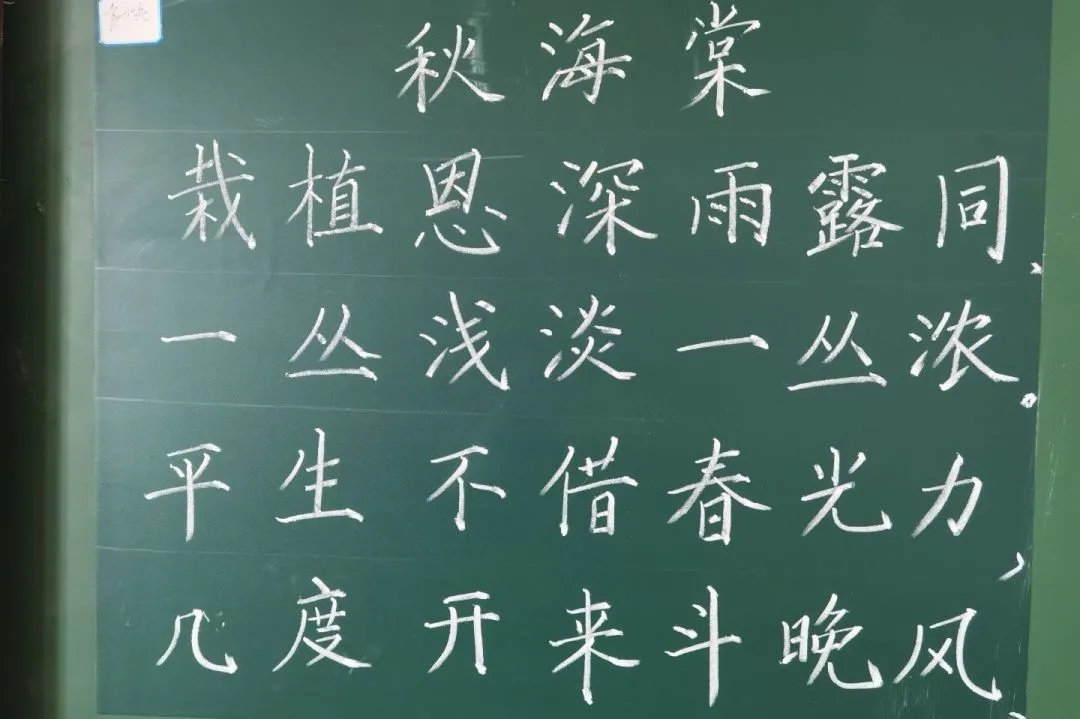 秋海棠
栽植恩深雨露同,
一丛浅淡一丛浓。
平生不借春光力,
几度开来斗晚风